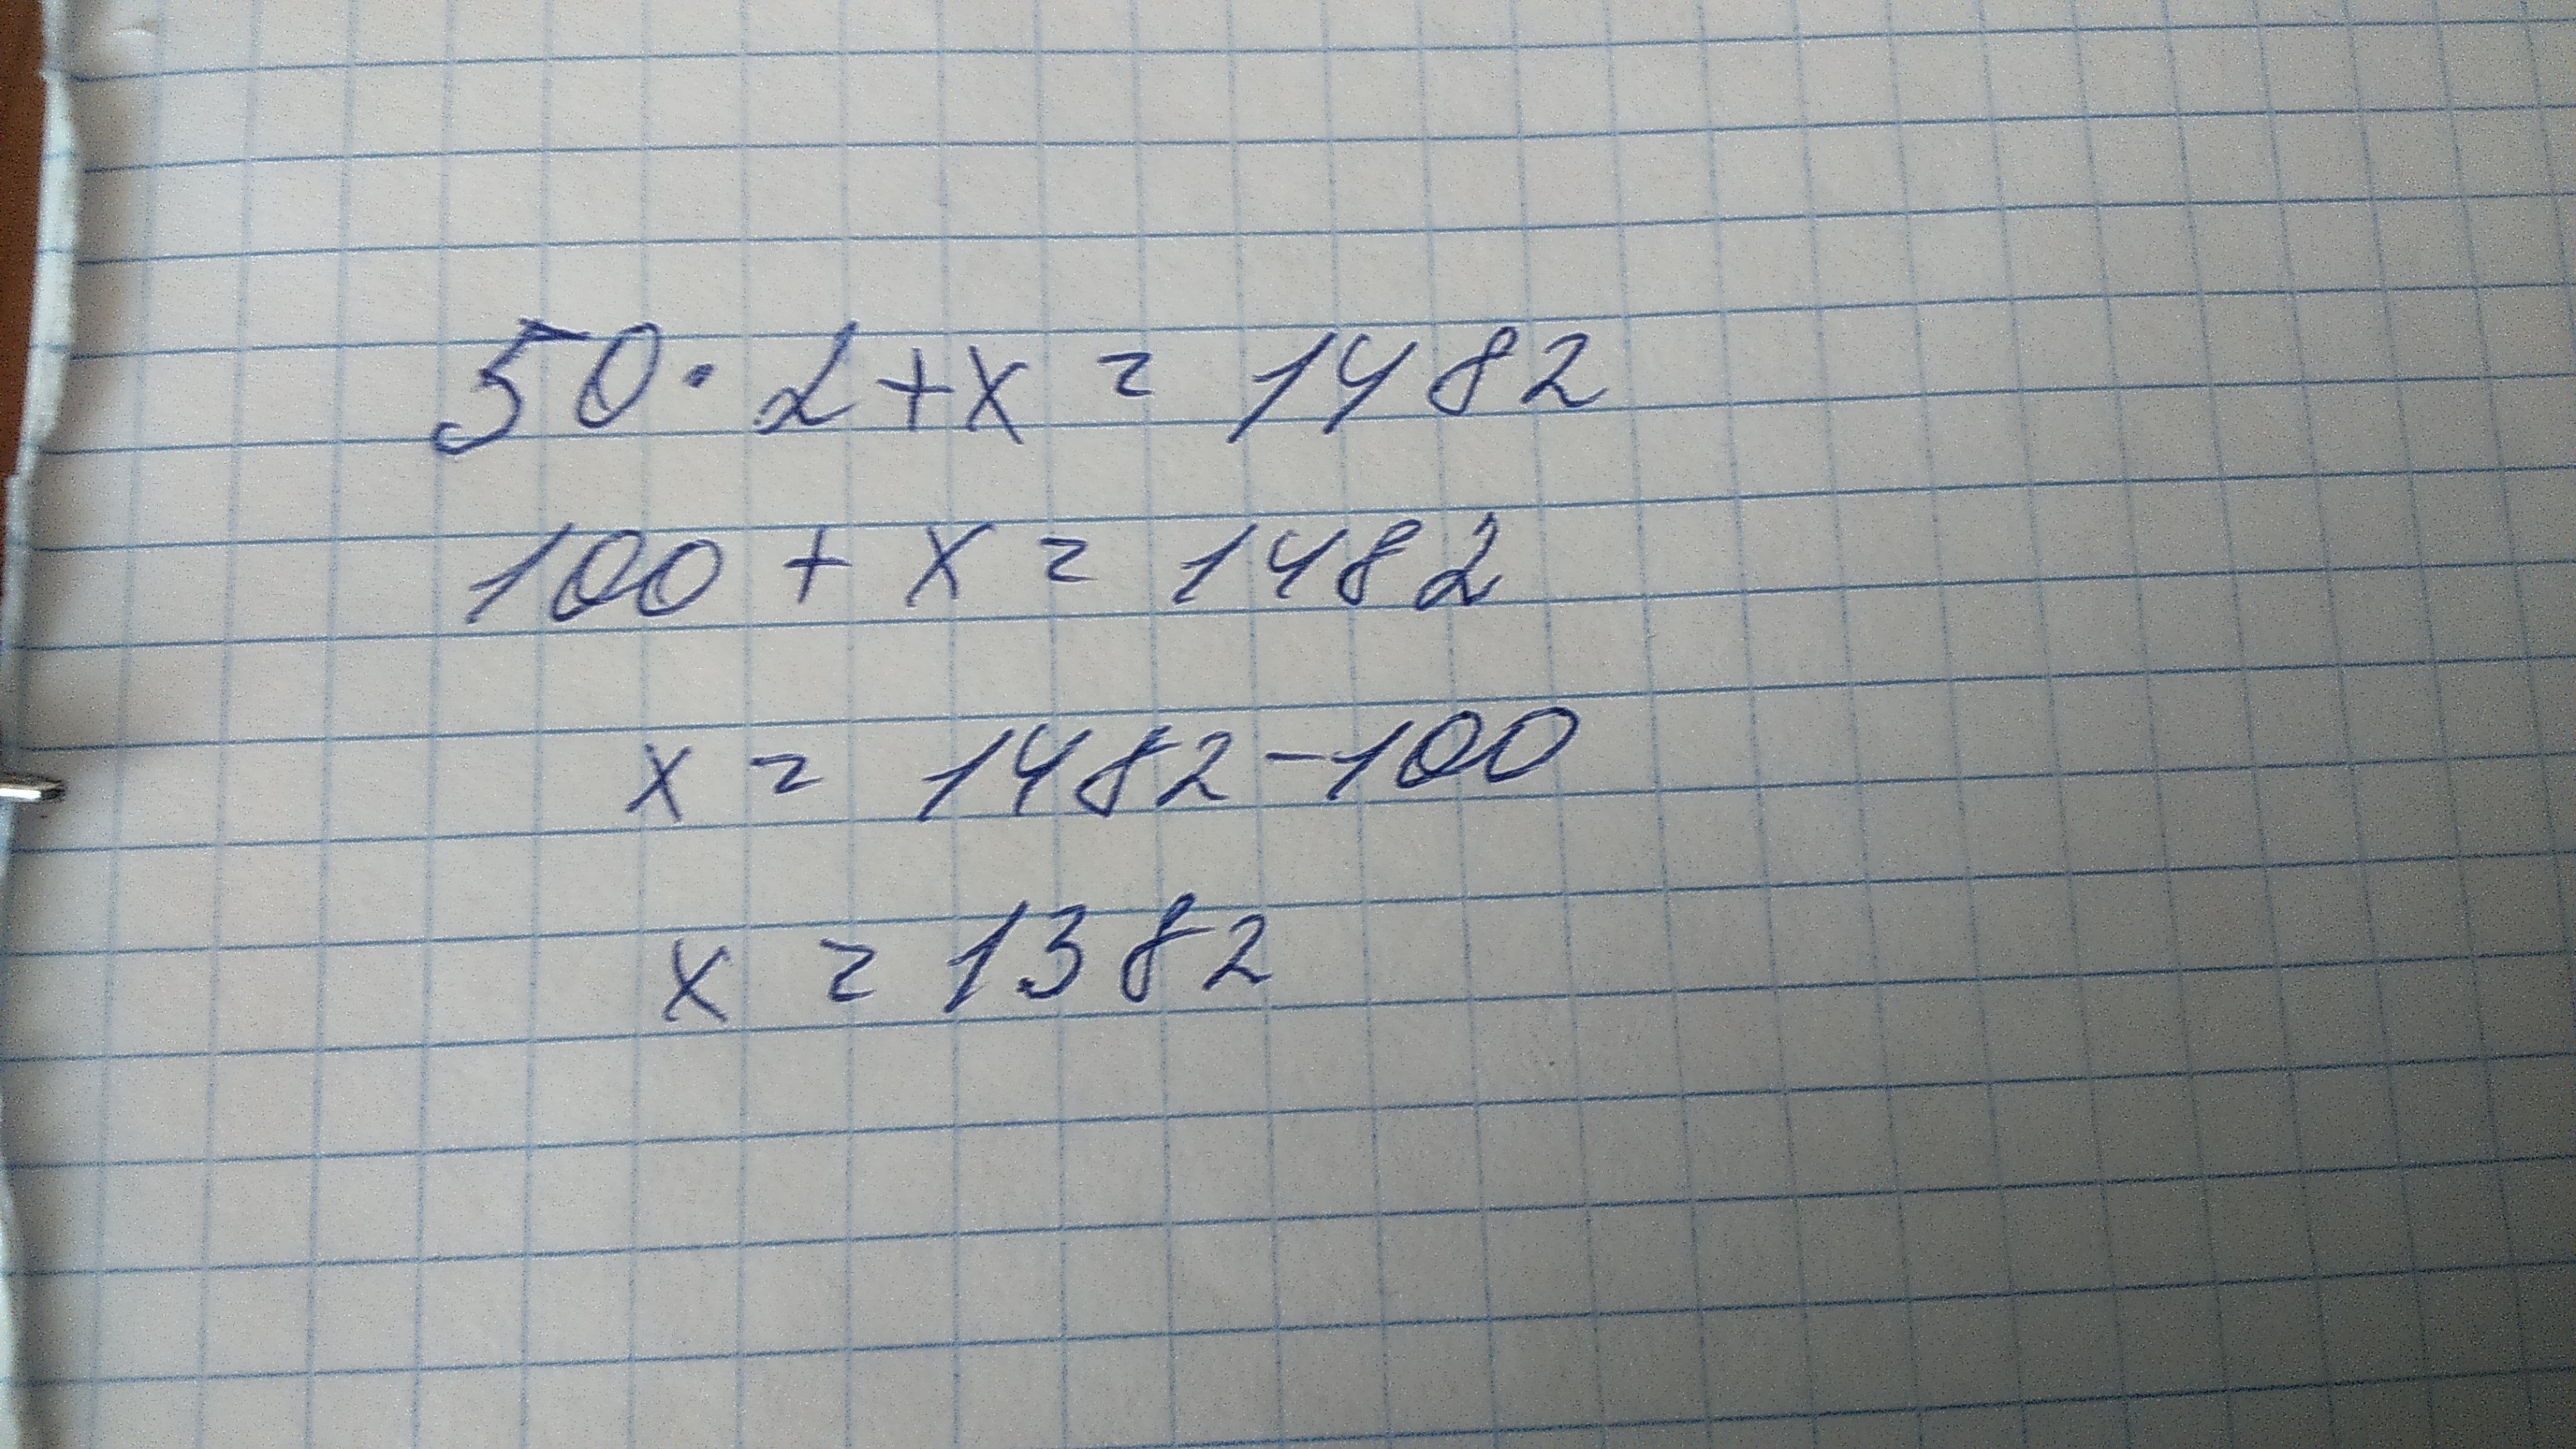 50 · 2 + x = 1482
100 + x = 1482
x = 1482 - 100
x = 1382